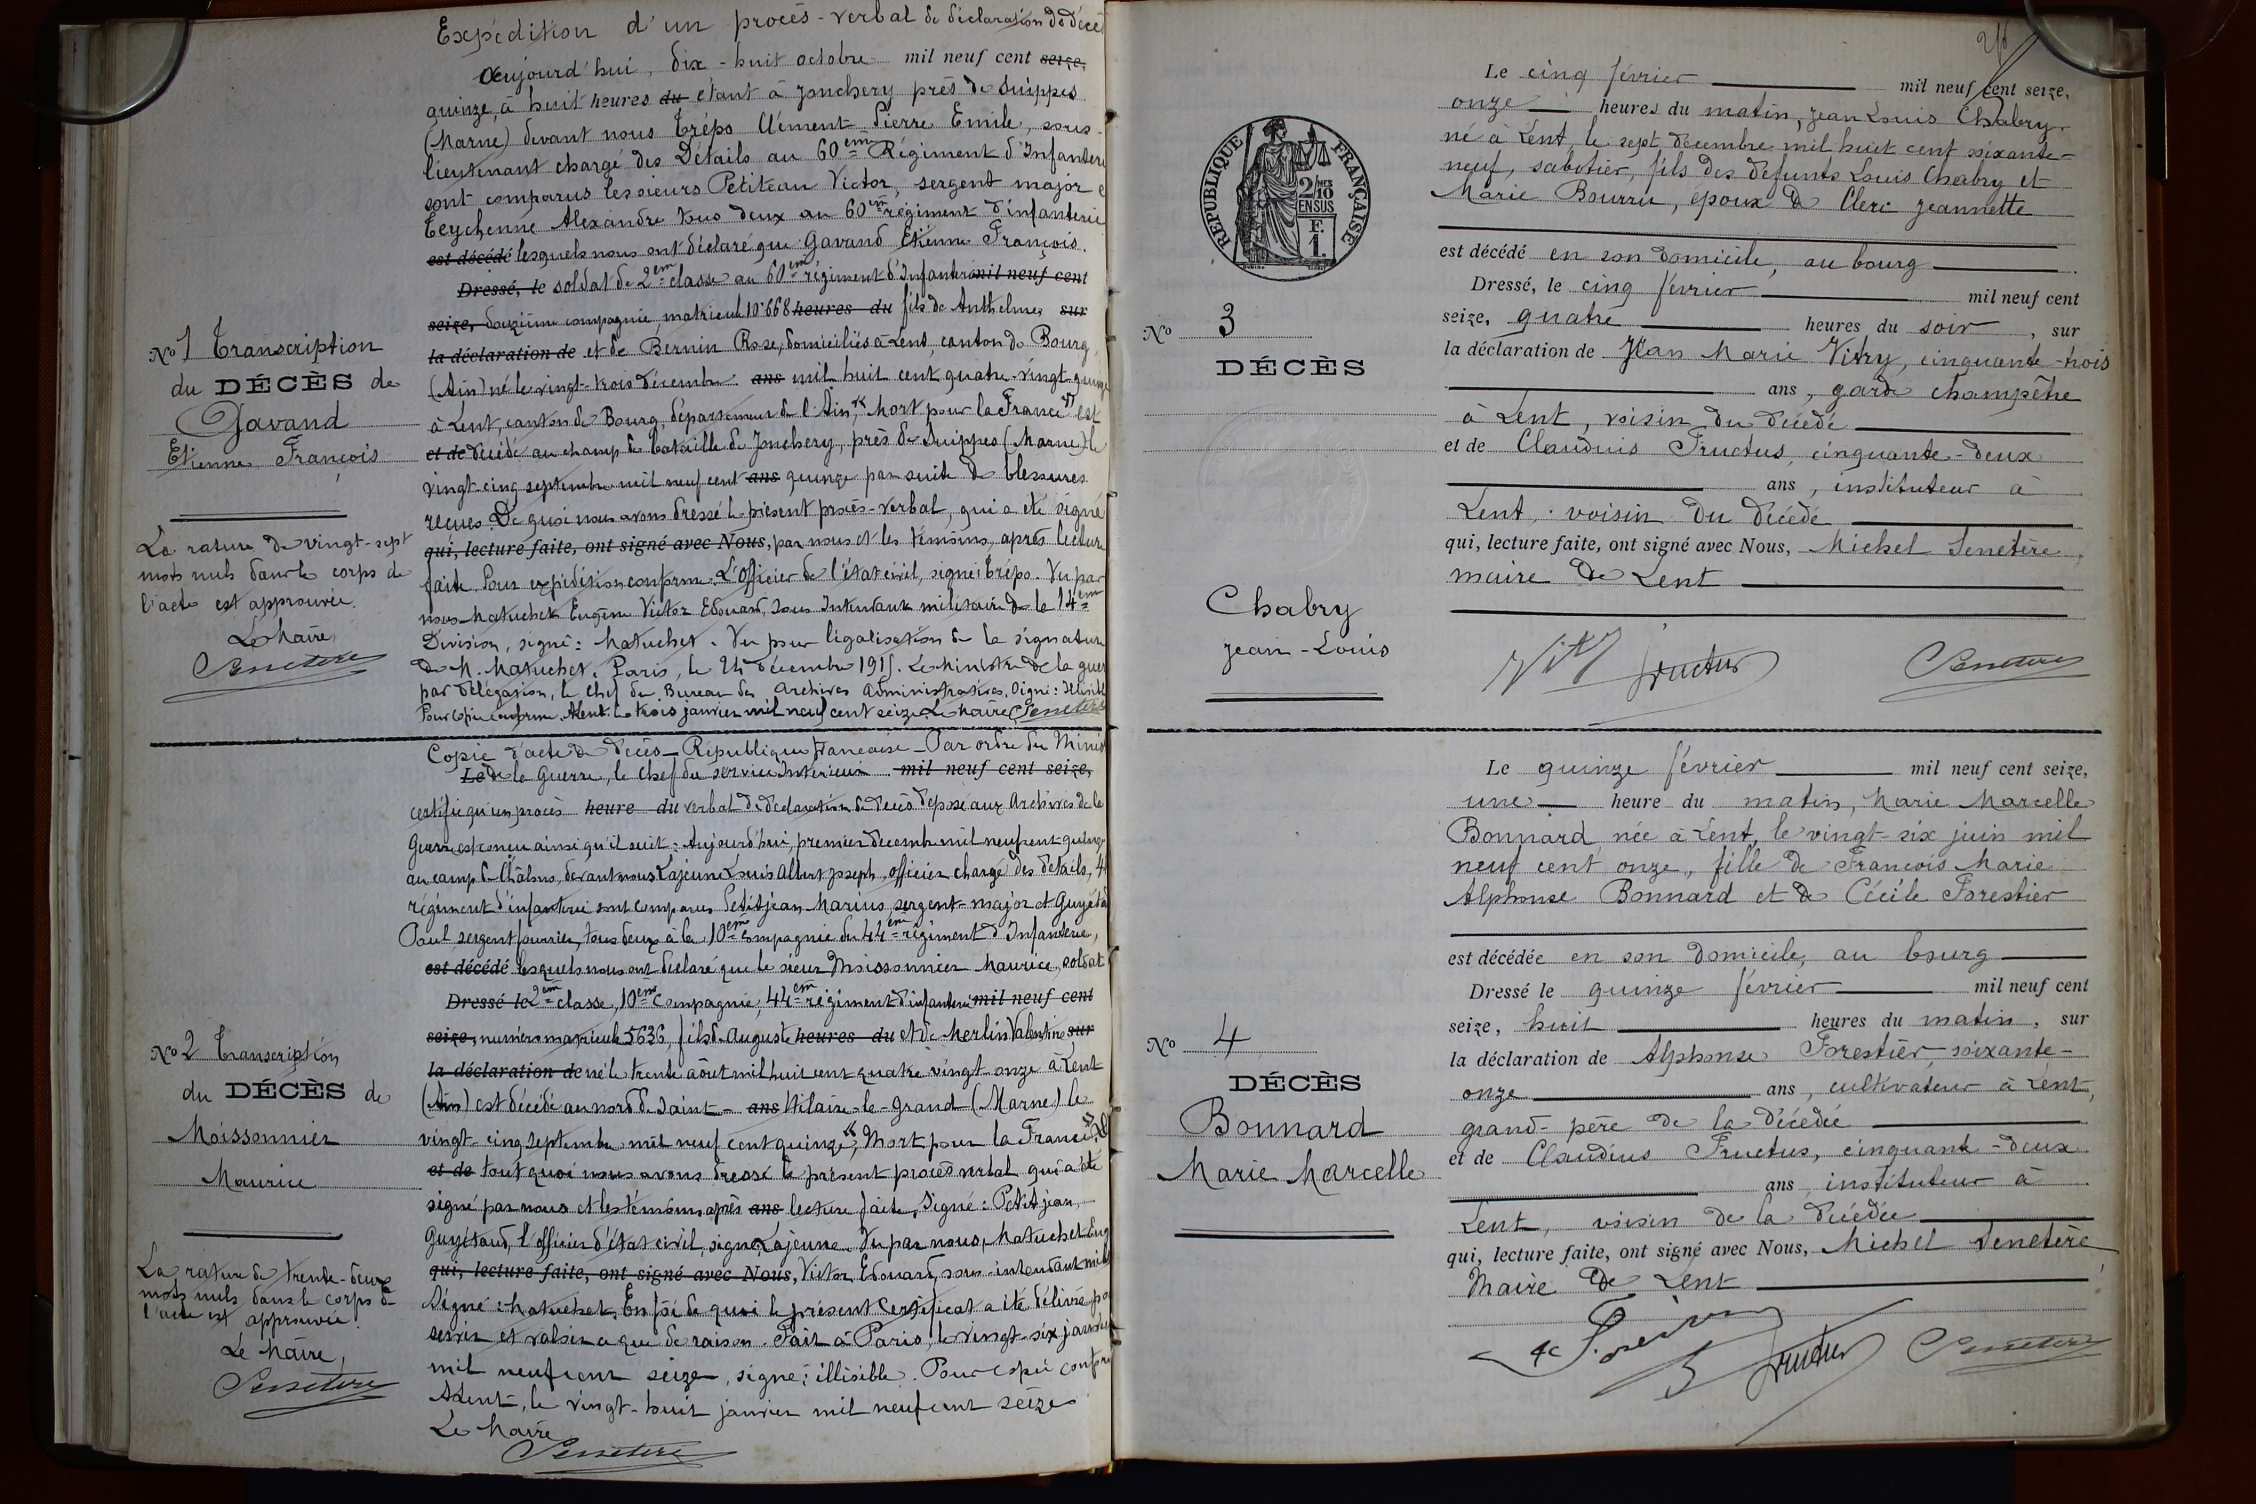 Expédition d'un procès-verbal de déclaration de décès
Aujourd'hui, dix-huit octobre mil neuf cent seize,
quinze, à huit heures du étant à Jonchery près de Suippes
(Marne) devant nous Trépo Clément Pierre Emile, sous-
lieutenant chargé des Détails au 60ème Régiment d'Infanterie
sont comparus les sieurs Petiteau Victor, sergent major et
Teychenné Alexandre tous deux au 60ème régiment d'infanterie
est décédé lesquels nous ont déclaré que Gavand Etienne François.
Dressé, le soldat de 2ème classe au 60ème régiment d'Infanterie mil neuf cent
seize, douzième compagnie, matricule 10668 heures du fils de Anthelme, sur
la déclaration de et de Bernin Rose, domiciliés à Lent, canton de Bourg,
(Ain) né le vingt-trois décembre ans mil huit cent quatre-vingt-quinze
à Lent, canton de Bourg, département de l'Ain, "Mort pour la France" est
et de décédé au champ de bataille de Jonchery, près de Suippes (Marne) le
vingt-cinq septembre mil neuf cent ans quinze par suite de blessures
reçues. De quoi nous avons dressé le présent procès-verbal, qui a été signé
qui, lecture faite, ont signé avec Nous, par nous et les témoins, après lecture
faite. Pour expédition conforme. L'officier de l'état civil, signé: Trépo. Vu par
nous Matuchet Eugène Victor Edouard, Sous Intendant militaire de la 14ème
Division, signé: Matuchet. Vu pour légalisation de la signature
de M. Matuchet. Paris, le 24 décembre 1915. Le Ministre de la guerre
par délégation, le Chef du Bureau des Archives Administratives. Signé: Illisible
Pour copie conforme. A Lent, le trois janvier mil neuf cent seize. Le Maire, Senetère
No 1 Transcription
du DÉCÈS de
Gavand
Etienne François
La rature de vingt-sept
mots nuls dans le corps de
l'acte est approuvée.
Le Maire,
Senetère
Copie d'acte de décès _ République française _ Par ordre du Ministre
Le de la Guerre, le Chef du service Intérieur mil neuf cent seize,
certifie qu'un procès heure du verbal de déclaration de décès déposé aux Archives de la
Guerre est conçu ainsi qu'il suit: Aujourd'hui, premier décembre mil neuf cent quinze
au camp de Châlons, devant nous Lajeune Louis Albert Joseph, officier chargé des détails, 44
régiment d'infanterie sont comparus Petitjean Marius, sergent-major et Guyétaud
Paul, sergent fourrier, tous deux à la 10ème Compagnie du 44ème régiment d'Infanterie,
est décédé lesquels nous ont déclaré que le sieur Moissonnier Maurice, soldat
Dressé le 2ème classe, 10ème Compagnie, 44ème régiment d'infanterie mil neuf cent
seize, numéro matricule 5636, fils de Auguste heures du et de Merlin Valentine sur
la déclaration de né le trente août mil huit cent quatre vingt-onze à Lent
(Ain) est décédé au nord de Saint- ans Hilaire-le-Grand (Marne) le
vingt-cinq septembre mil neuf cent quinze, "Mort pour la France" De
et de tout quoi nous avons dressé le présent procès verbal qui a été
signé par nous et les témoins après ans lecture faite. Signé: Petitjean,
Guyétaud, l'officier d'état civil, signé Lajeune. Vu par nous, Matuchet Eug
qui, lecture faite, ont signé avec Nous, Victor Edouard, sous-intendant mil
Signé: Matuchet. En foi de quoi le présent Certificat a été délivré pour
servir et valoir ce que de raison. Fait à Paris, le vingt-six janvier
mil neuf cent seize, signé: illisible. Pour copie conforme
A Lent, le vingt-huit janvier mil neuf cent seize
Le Maire
Senetère
No 2 Transcription
du DÉCÈS de
Moissonnier
Maurice
La rature de trente-deux
mots nuls dans le corps de
l'acte est approuvée.
Le Maire,
Senetère
RÉPUBLIQUE FRANÇAISE
2/10MES
EN SUS
F.
1.
No 3
DÉCÈS
Chabry
Jean-Louis
Le cinq février mil neuf cent seize,
onze heures du matin, Jean Louis Chabry
né à Lent, le sept décembre mil huit cent soixante-
neuf, sabotier, fils des défunts Louis Chabry et
Marie Bourru, époux de Clerc Jeannette
est décédé en son domicile, au bourg
Dressé, le cinq février mil neuf cent
seize, quatre heures du soir, sur
la déclaration de Jean Marie Vitry, cinquante-trois
ans, garde champêtre
à Lent, voisin du décédé
et de Claudius Fructus, cinquante-deux
ans, instituteur à
Lent, voisin du décédé
qui, lecture faite, ont signé avec Nous, Michel Senetère,
maire de Lent
Vitry Fructus Senetère
No 4
DÉCÈS
Bonnard
Marie Marcelle
Le quinze février mil neuf cent seize,
une heure du matin, Marie Marcelle
Bonnard née à Lent, le vingt-six juin mil
neuf cent onze, fille de François Marie
Alphonse Bonnard et de Cécile Forestier
est décédée en son domicile, au bourg
Dressé le quinze février mil neuf cent
seize, huit heures du matin, sur
la déclaration de Alphonse Forestier, soixante-
onze ans, cultivateur à Lent,
grand-père de la décédée
et de Claudius Fructus, cinquante-deux
ans, instituteur à
Lent, voisin de la décédée
qui, lecture faite, ont signé avec Nous, Michel Senetère,
Maire de Lent
Fructus Senetère